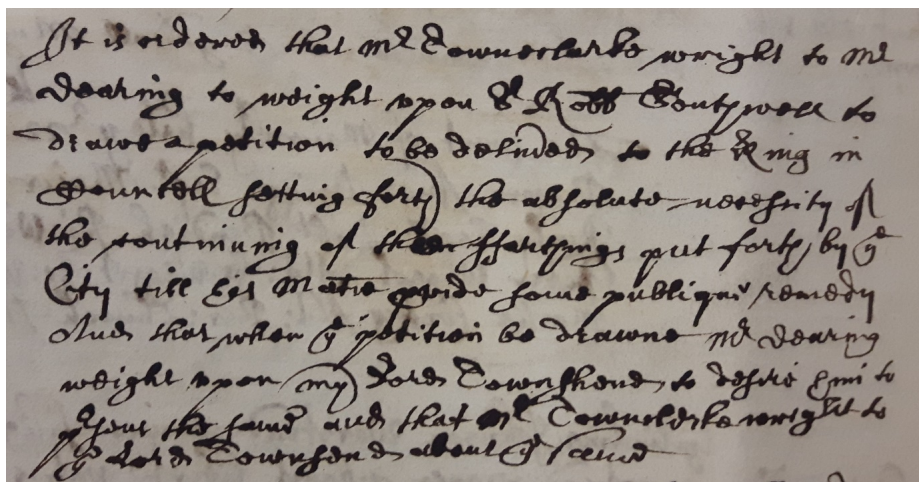 It is ordered that Mr Towneclarke wright to Mr
Dearing to weight vpon Sr Robt Southwell to
drawe a petition to be deliured to the King in
Councell setting forth the absolute necessity of
the continuing of the ffarthings put forth by ye
City till his Matie pvide some publique remedy
And that when ye petition be drawne Mr Dearing
weight vpon my Lord Townshend to desire him to
psent the same and that Mr Towneclerke wright to
ye Lord Townsend about ye same